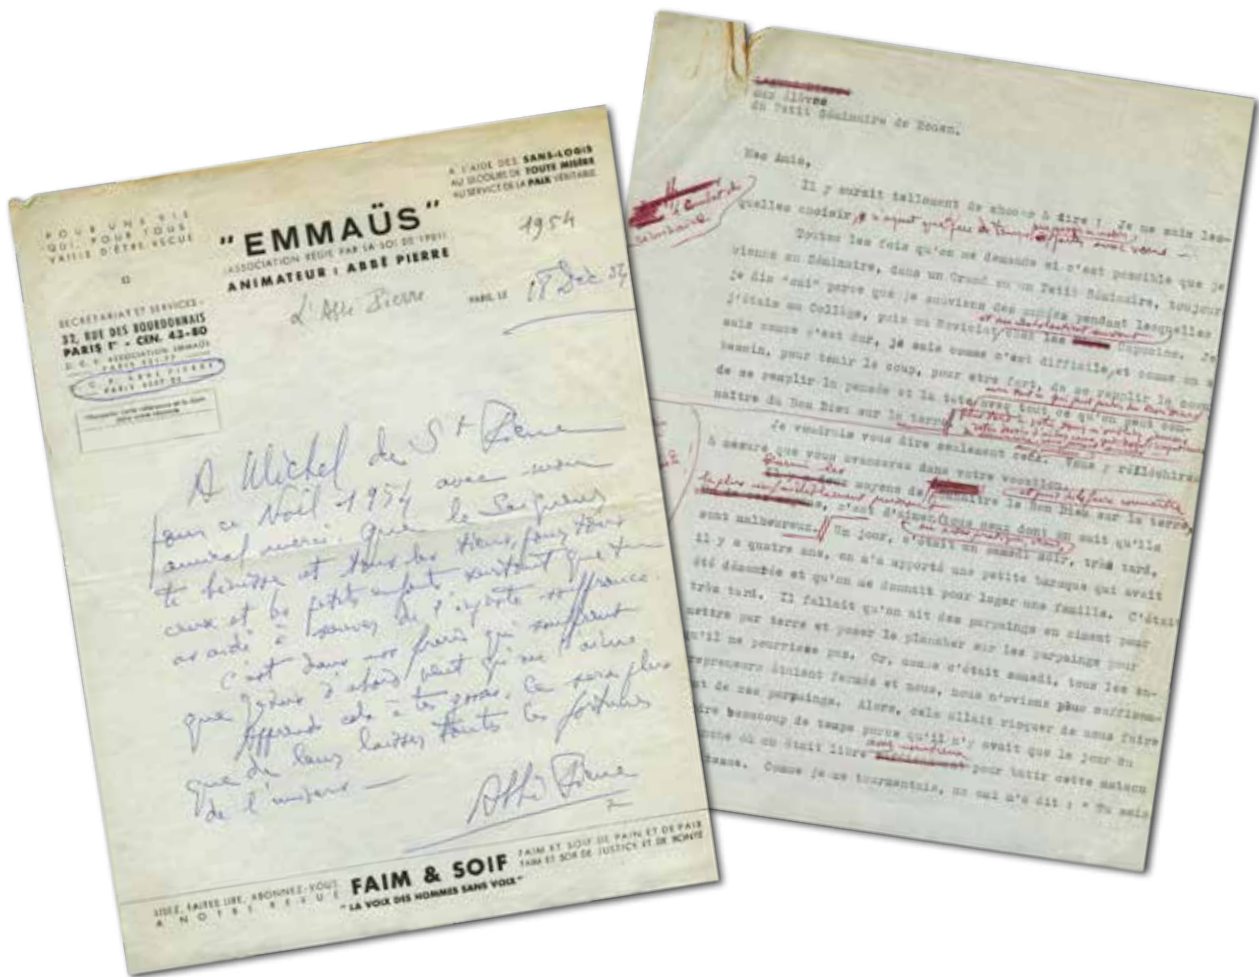 POUR UNE VIE
QUI, POUR TOUS,
VAILLE D'ÊTRE VÉCUE
"EMMAÜS"
(ASSOCIATION RÉGIE PAR LA LOI DE 1901)
ANIMATEUR : ABBÉ PIERRE
A L'AIDE DES SANS-LOGIS
AU SECOURS DE TOUTE MISÈRE
AU SERVICE DE LA PAIX VÉRITABLE
1954
L'Abbé Pierre
PARIS, LE 18 Déc 54
SECRÉTARIAT ET SERVICES
32, RUE DES BOURDONNAIS
PARIS Ier - CEN. 43-80
ASSOCIATION EMMAÜS
ABBÉ PIERRE
A Michel de St Pierre
pour ce Noël 1954 avec mon
amical merci. Que le Seigneur
te bénisse et tous les tiens, pour tous
ceux et les petits enfants surtout que tu
as aidé à sauver de l'injuste souffrance.
C'est dans nos frères qui souffrent
que Jésus d'abord veut qu'on l'aime
Apprends cela à tes gosses. Ce sera plus
que de leur laisser toutes les fortunes
de l'univers —
Abbé Pierre
LISEZ, FAITES LIRE, ABONNEZ-VOUS
A NOTRE REVUE
FAIM & SOIF
"LA VOIX DES HOMMES SANS VOIX"
FAIM ET SOIF DE PAIN ET DE PAIX
FAIM ET SOIF DE JUSTICE ET DE BONTÉ
aux élèves
du Petit Séminaire de Rouen.
Mes Amis,
Il y aurait tellement de choses à dire ! Je ne sais les-
quelles choisir
Toutes les fois qu'on me demande si c'est possible que je
vienne au Séminaire, dans un Grand ou un Petit Séminaire, toujours
je dis "oui" parce que je me souviens des années pendant lesquelles
j'étais au Collège, puis au Noviciat chez les Capucins. Je
sais comme c'est dur, je sais comme c'est difficile, et comme on a
besoin, pour tenir le coup, pour être fort, de se remplir le coeur
de se remplir la pensée et la tête avec tout ce qu'on peut con-
naître du Bon Dieu sur la terre
Je voudrais vous dire seulement ceci. Vous y réfléchirez
à mesure que vous avancerez dans votre vocation.
moyens de connaître le Bon Dieu sur la terre,
et pour le faire connaître
c'est d'aimer tous ceux dont on sait qu'ils
sont malheureux. Un jour, c'était un samedi soir, très tard,
il y a quatre ans, on m'a apporté une petite baraque qui avait
été démontée et qu'on me donnait pour loger une famille. C'était
très tard. Il fallait qu'on ait des parpaings en ciment pour
mettre par terre et poser le plancher sur les parpaings pour
qu'il ne pourrisse pas. Or, comme c'était samedi, tous les en-
trepreneurs étaient fermés et nous, nous n'avions plus suffisam-
ment de ces parpaings. Alors, cela allait risquer de nous faire
beaucoup de temps parce qu'il n'y avait que le jour du
où on était libre pour bâtir cette maison
Comme je me tourmentais, un ami m'a dit : " Tu sais